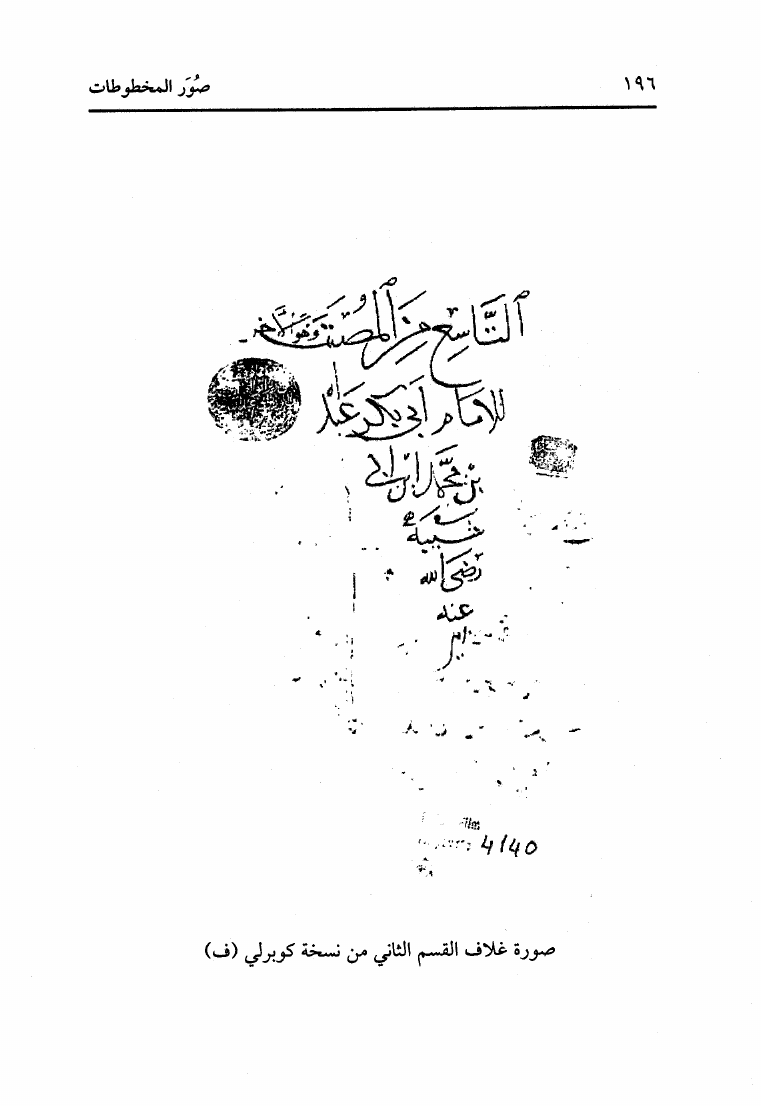 ١٩٦ صُوَر المخطوطات
ٱلتَّاسِع مِن ٱلْمُصَنَّف وَهُوَ الآخر
للامَام أبي بكر عَبد
بن محمَّد ابن ابى
شيبة
رَضى الله
عنه
4140
صورة غلاف القسم الثاني من نسخة كوبرلي (ف)